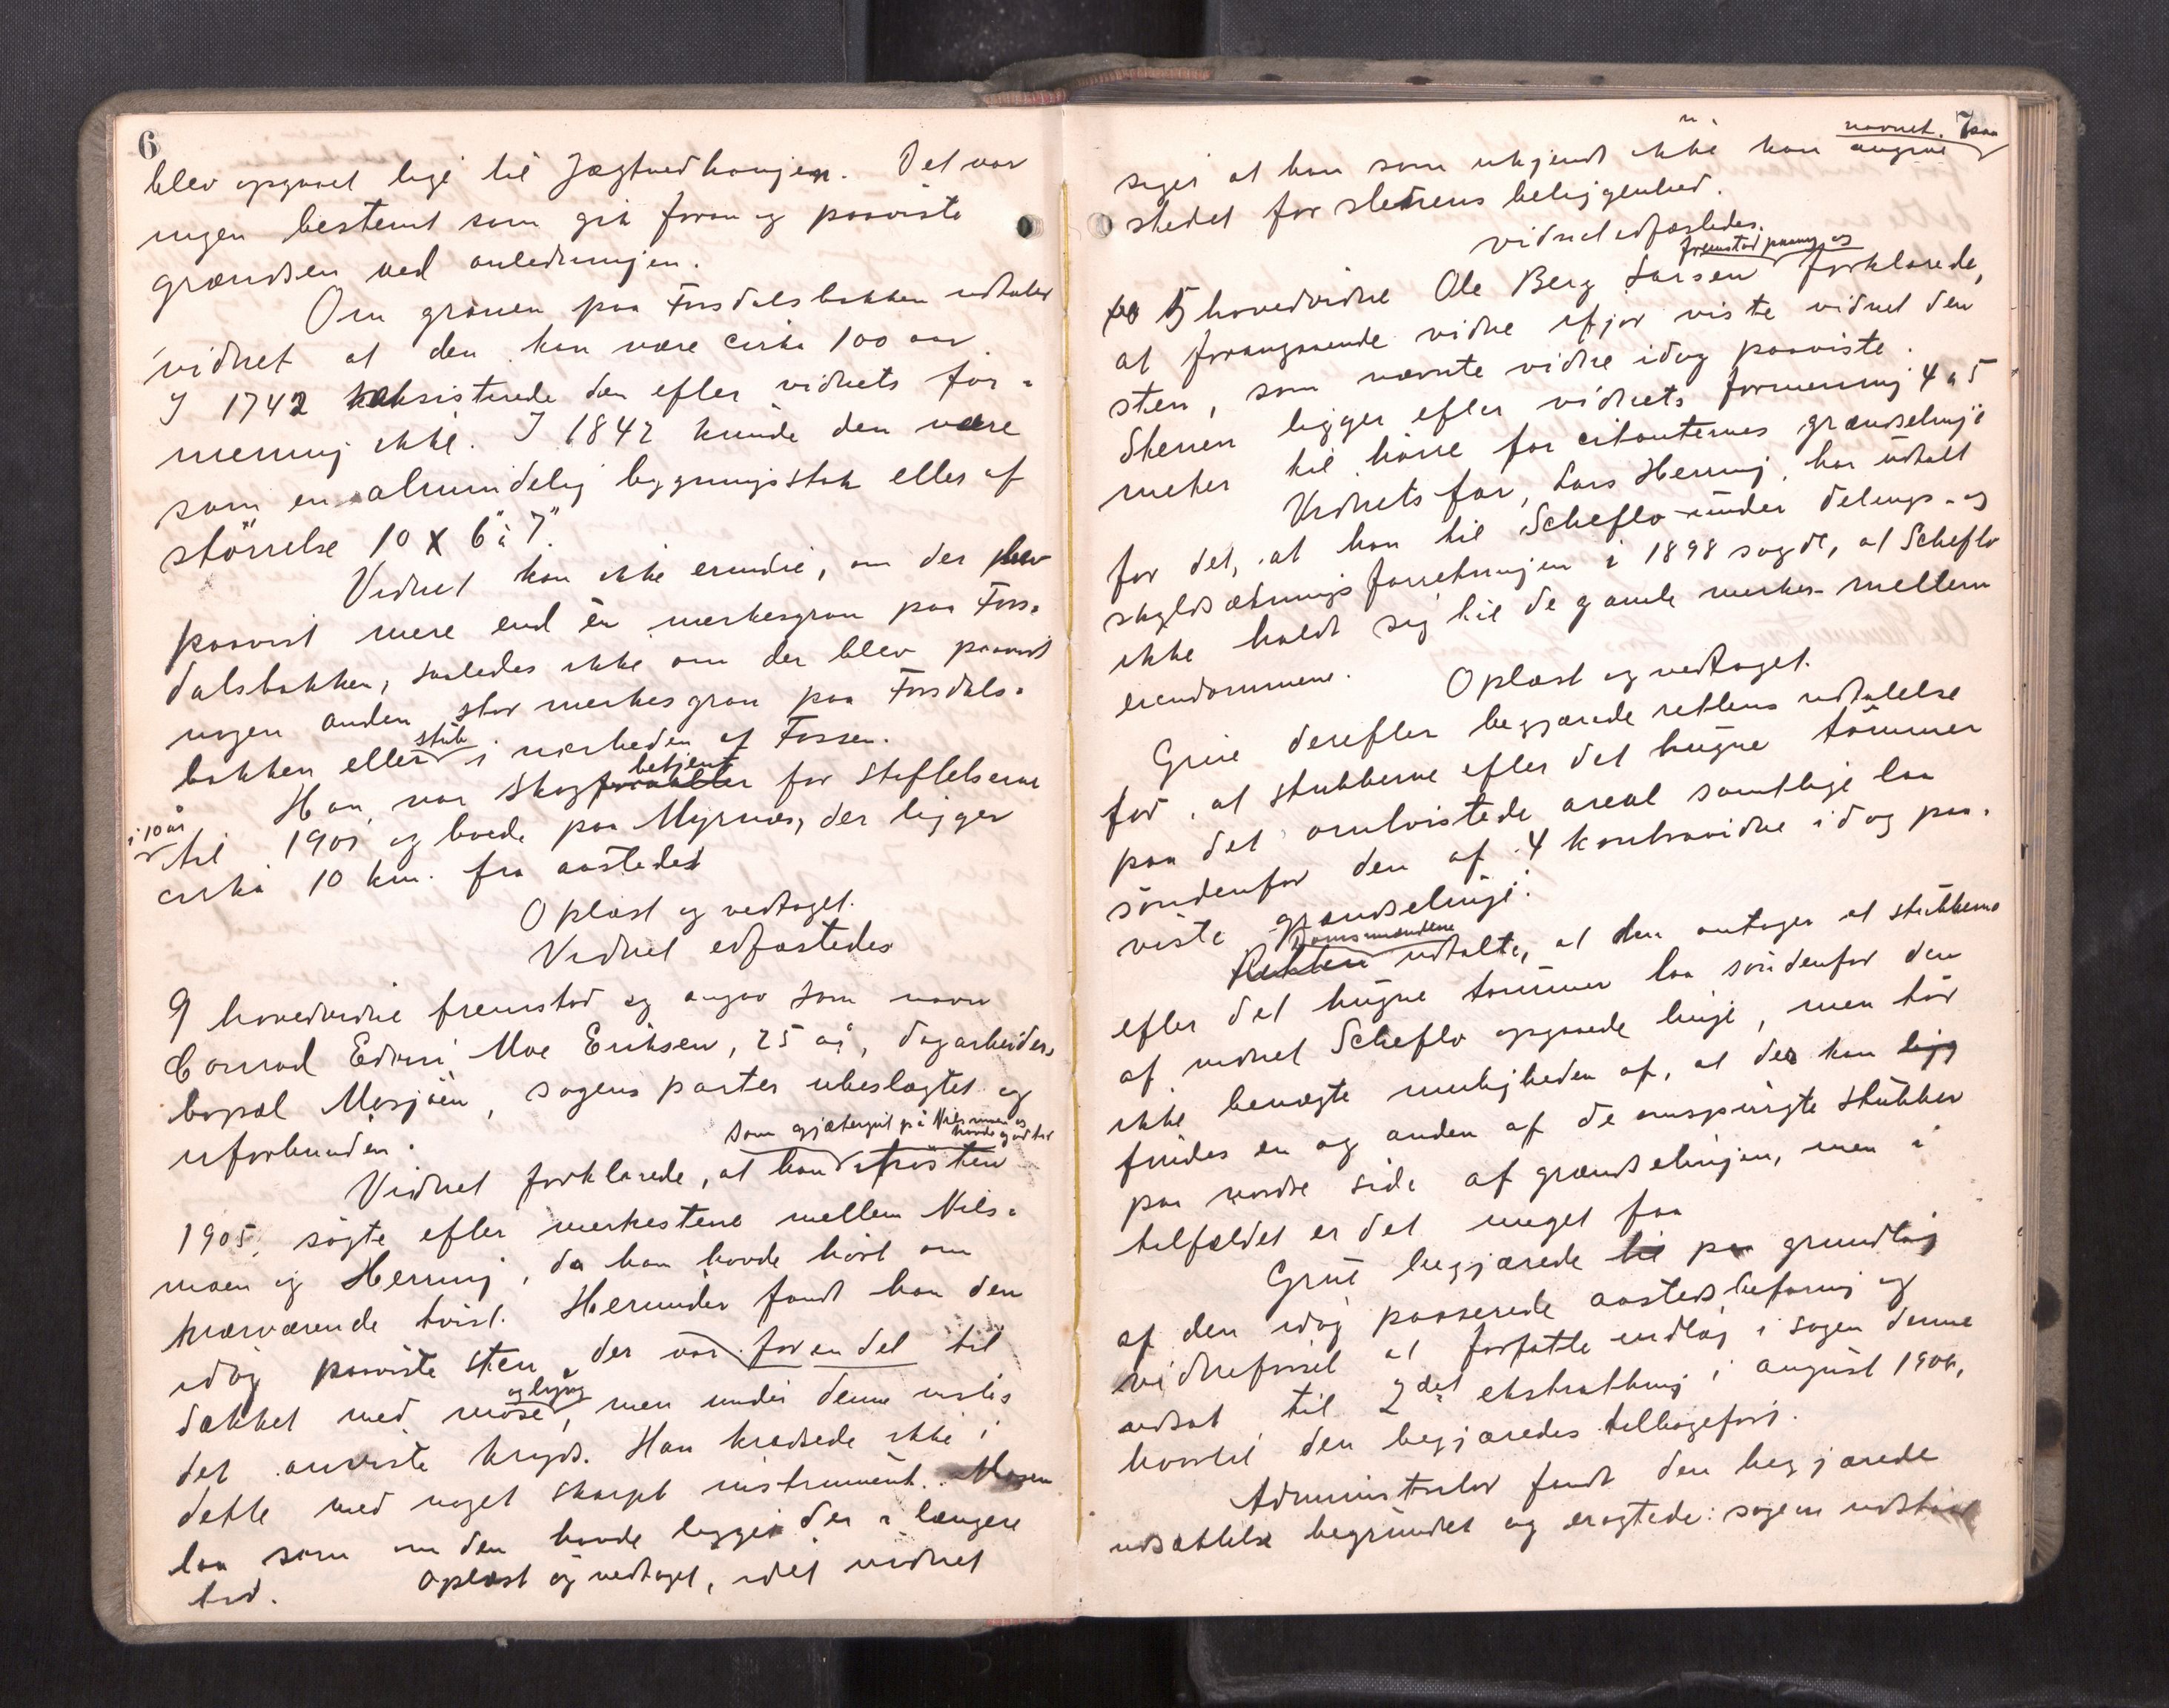 6
blev opgaaet lige til Jægtvedhaugen. Det var
ingen bestemt som gik foran og paaviste
grændsen ved anledningen.
Om granen paa Fosdalsbakken udtaler
vidnet at den kan være cirka 100 aar.
I 1742 eksisterede den efter vidnets for-
mening ikke. I 1842 kunde den være
som en almindelig bygningsstok eller af
størrelse 10 x 6" à 7".
Vidnet kan ikke erindre, om der blev
paavist mere end én merkesgran paa Fos-
dalsbakken, saaledes ikke om der blev paavist
nogen anden stor merkesgran paa Fosdals-
bakken eller stub i nærheden af Fossen.
Han var skogbetjent for Stiftelserne
i 10 år til 1901 og boede paa Myrnes, der ligger
cirka 10 km. fra aastedet
Oplæst og vedtaget.
Vidnet edfæstedes
9 hovedvidne fremstod og angav som navn
Conrad Edvin Moe Eriksen, 25 år, dagarbeider,
bopæl Mosjøen, sagens parter ubeslægtet og
uforbunden.
Vidnet forklarede, at han som gjætergut på Nilsmoen og havde god tid høsten
1905, søgte efter merkestene mellem Nils-
moen og Herring, da han havde hørt om
nærværende tvist. Herunder fandt han den
idag paaviste sten, der var for en del til
dækket med mose og lyng, men under denne vistes
det anviste kryds. Han kradsede ikke i
dette med noget skarpt instrument. Mosen
laa som om den havde ligget der i længere
tid. Oplæst og vedtaget, idet vidnet
7
siger at han som ukjendt ikke kan angive navnet paa
stedet for stenens beliggenhed.
vidnet edfæstedes.
5 hovedvidne Ole Berg Larsen fremstod paany og forklarede,
at foregaaende vidne ifjor viste vidnet den
sten, som nævnte vidne idag paaviste.
Stenen ligger efter vidnets formening 4 a 5
meter til høire for citanternes grændselinje
Vidnets far, Lars Herring, har udtalt
for det, at han til Scheflo under delings- og
skyldsætningsforretningen i 1898 sagde, at Scheflo
ikke holdt sig til de gamle merker mellem
eiendommene. Oplæst og vedtaget.
Grue derefter begjærede rettens udtalelse
for, at stubberne efter det hugne tømmer
paa det omtvistede areal samtlige laa
søndenfor den af 4 kontravidne idag paa-
viste grændselinje.
Domsmændene udtalte, at den antager at stubberne
efter det hugne tømmer laa søndenfor den
af vidnet Scheflo opgaaede linje, men tør
ikke benægte muligheden af, at der kan
findes en og anden af de omspurgte stubber
paa nordre side af grændselinjen, men i
tilfældet er det meget faa
Grue begjærede paa grundlag
af den idag passerede aastedsbefaring og
vidneførsel at forfatte indlæg i sagen denne
udsat til 2det ekstratting i august 1906,
hvortil den begjæredes tilbageført.
Administrator fandt den begjærede
udsættelse begrundet og eragtede: sagen udstaar